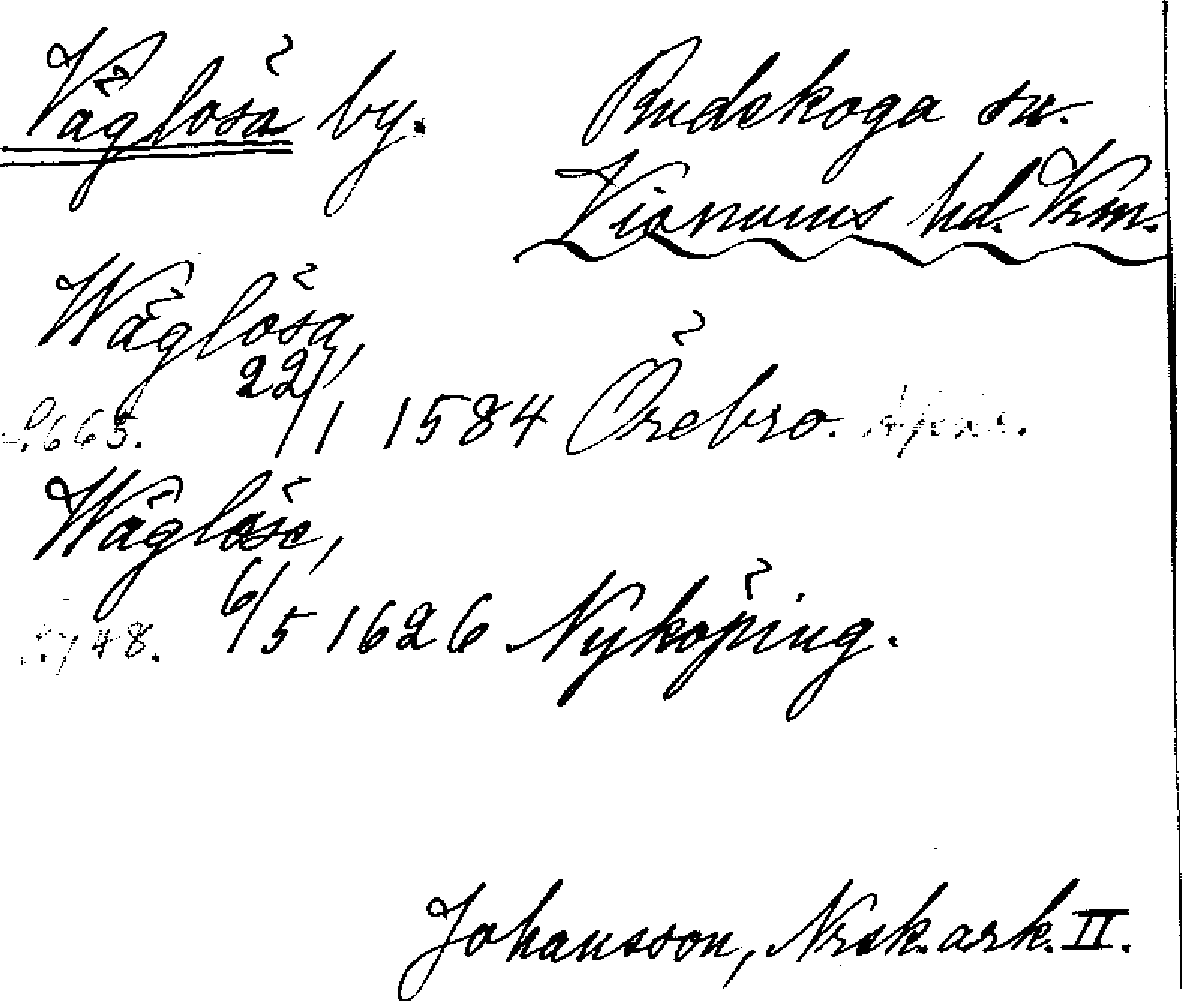 Väglösa by.
Rudskoga sn.
Visnums hd. Vrm.
Wäglösa,
22/1 1584 Örebro.
665.
Wäglöse,
6/5 1626 Nyköping.
748.
Johansson, Nrsk. ark. II.